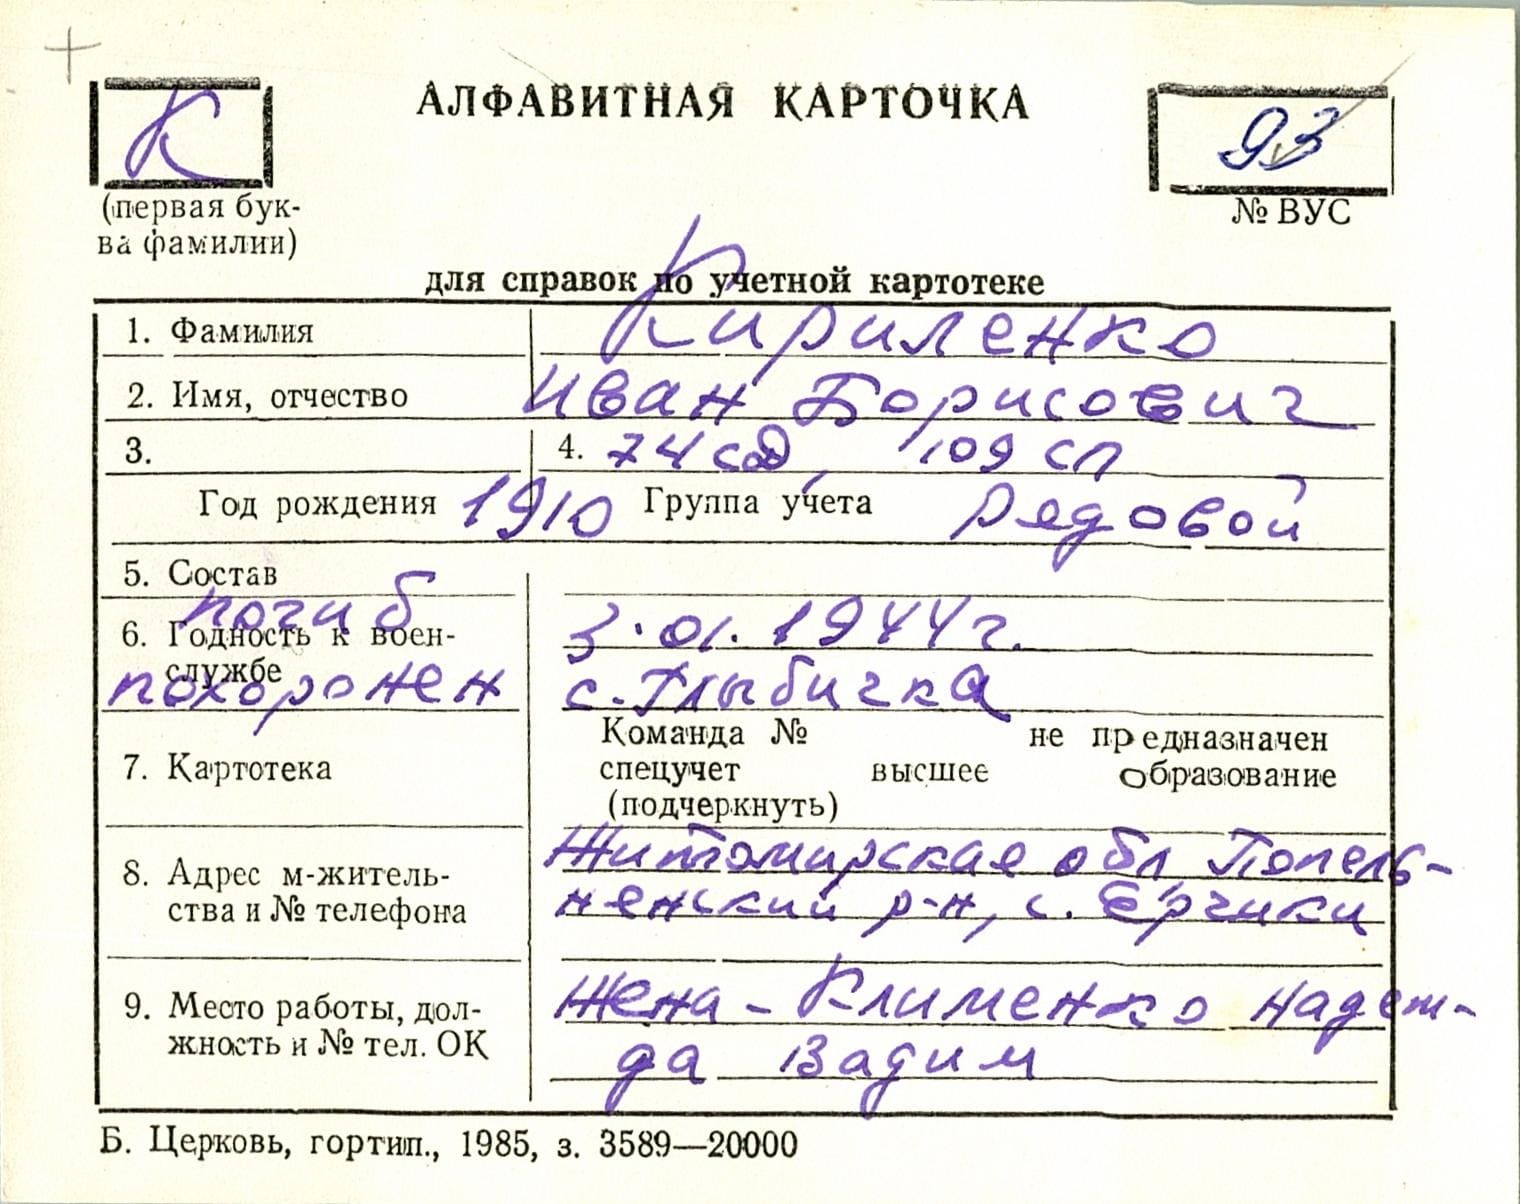 К
АЛФАВИТНАЯ КАРТОЧКА
93
(первая бук-
ва фамилии)
№ ВУС
для справок по учетной картотеке
1. Фамилия Кириленко
2. Имя, отчество Иван Борисович
3. 4. 74 сд, 109 сп
Год рождения 1910 Группа учета Рядовой
5. Состав
погиб 3.01.1944 г.
6. Годность к воен-
службе
похоронен с. Глыбичка
Команда № не предназначен
7. Картотека спецучет высшее образование
(подчеркнуть)
Житомирская обл Попель-
8. Адрес м-житель-
ства и № телефона ненский р-н, с. Ерчики
9. Место работы, дол- Жена - Клименко Надеж-
жность и № тел. ОК да Вадим
Б. Церковь, гортип., 1985, з. 3589—20000